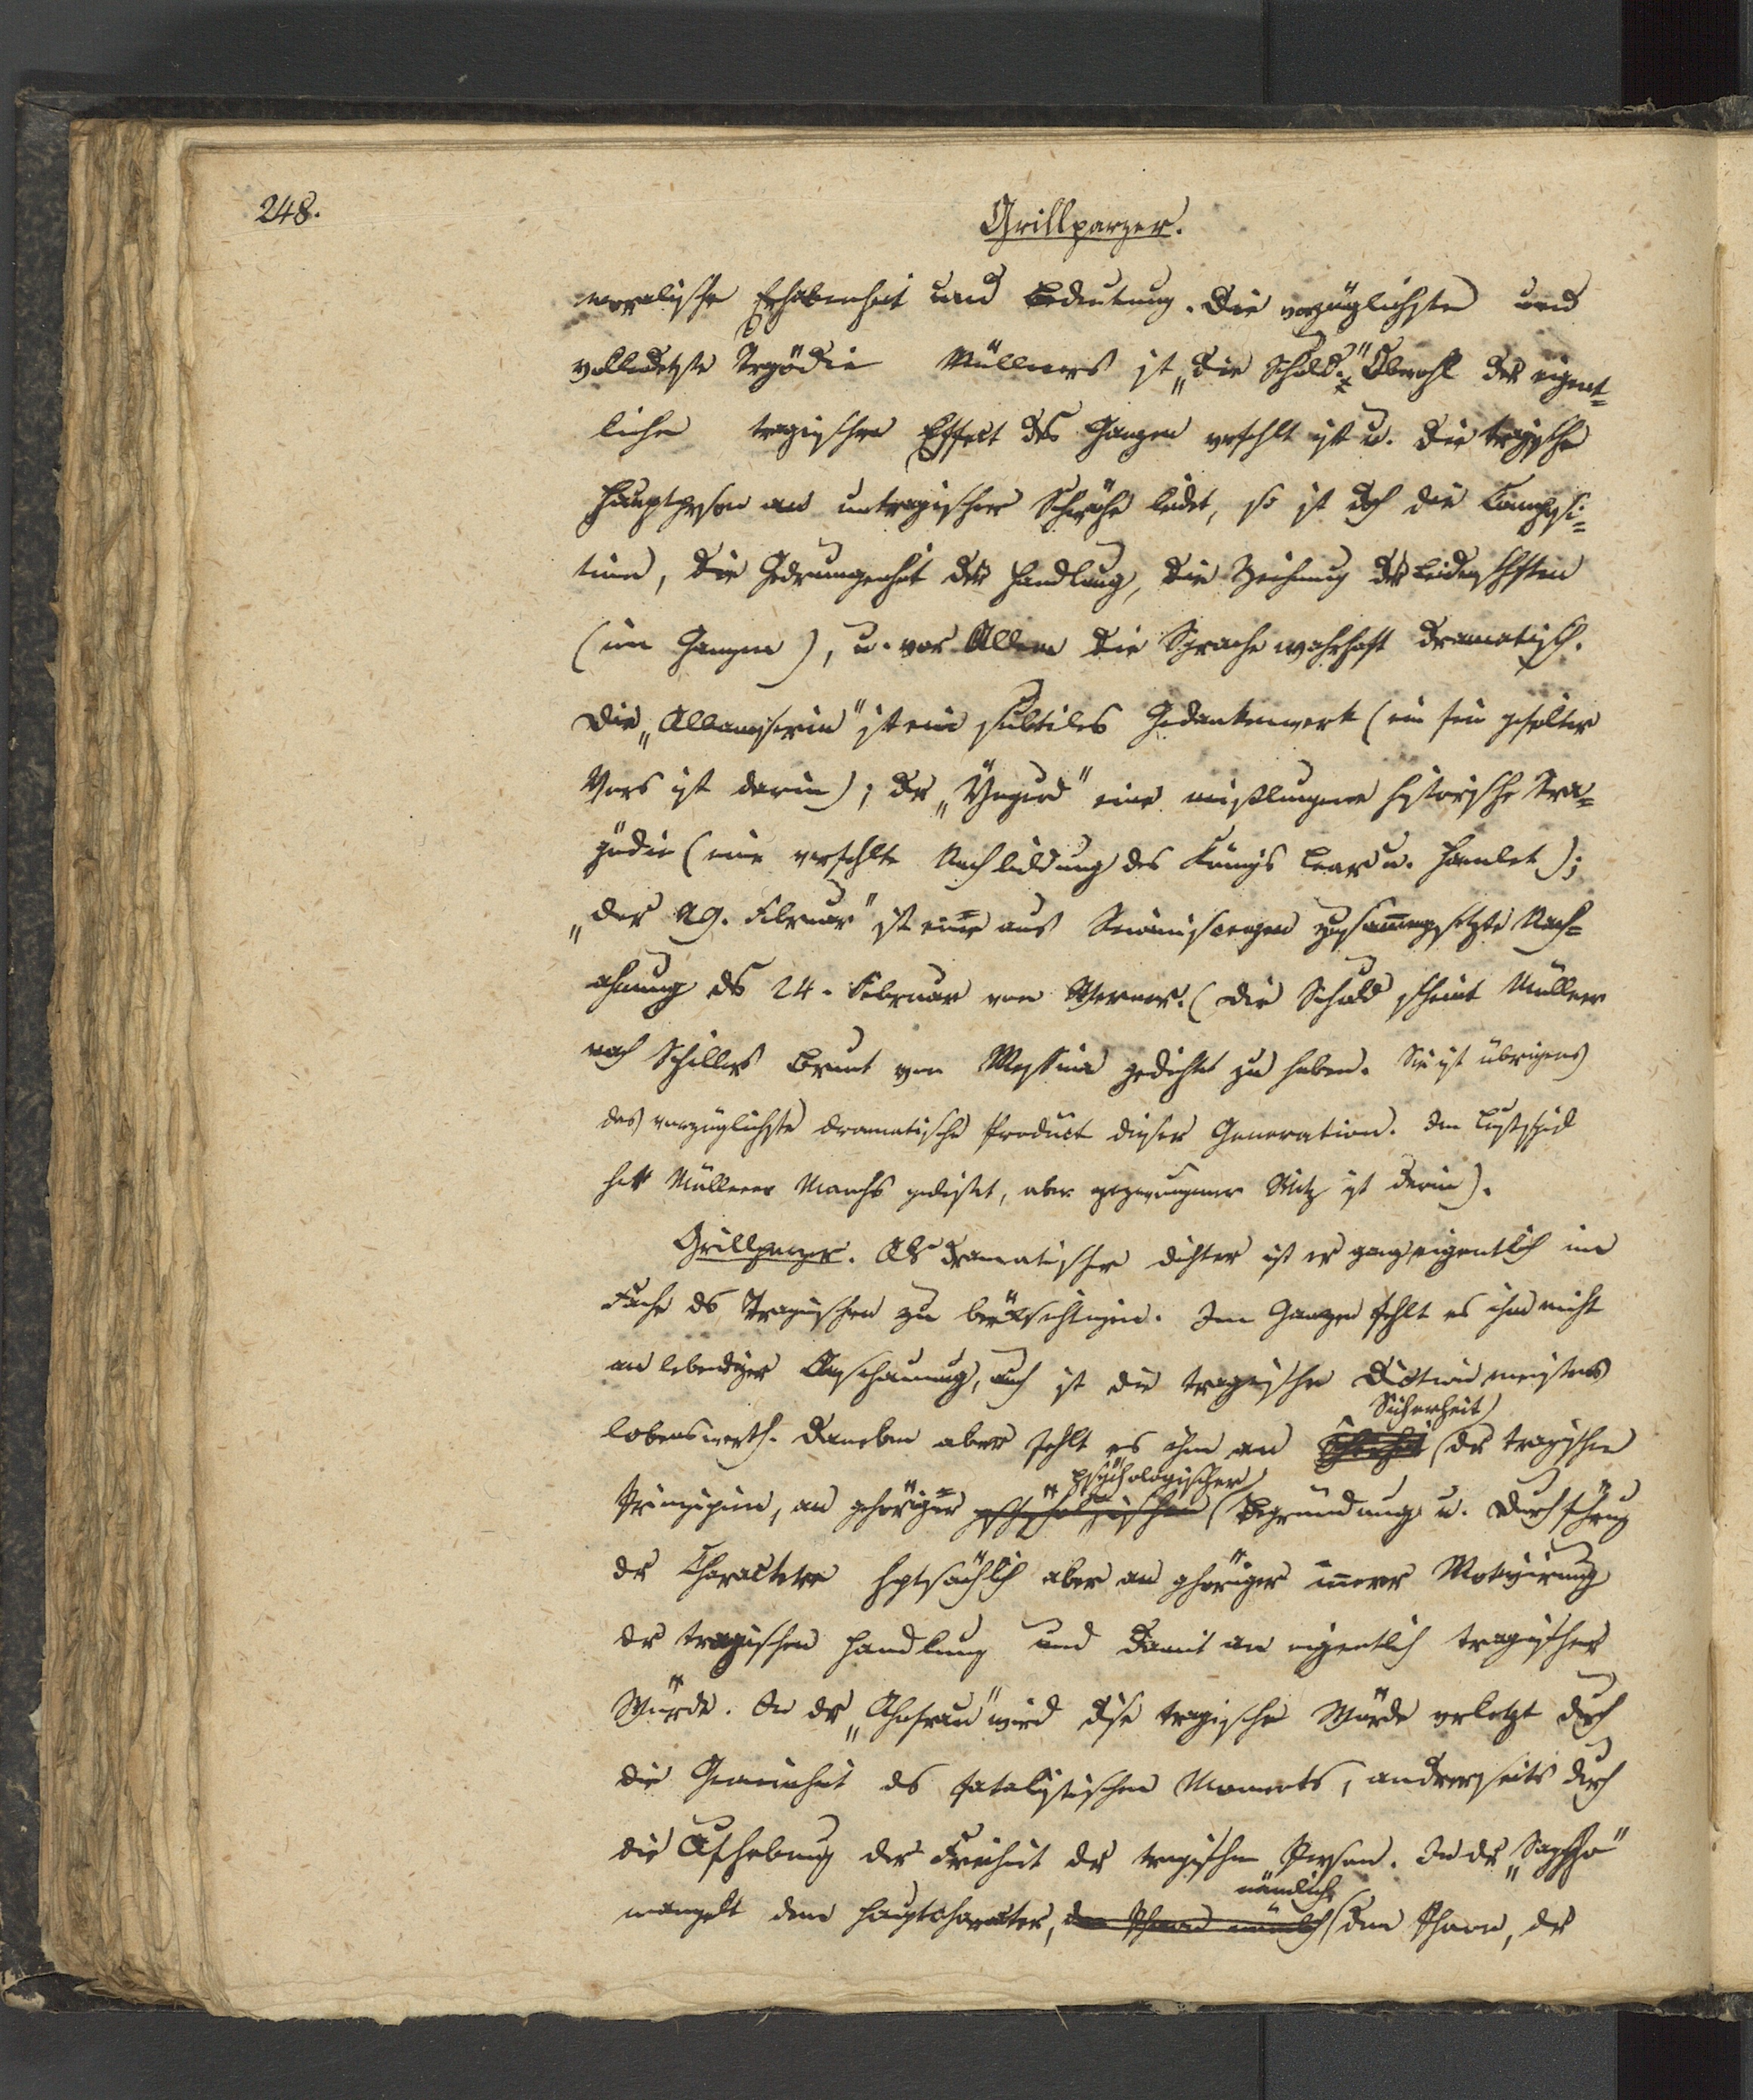 248.
Grillparzer.
moralische Erhabenheit und Bedeutung. Die vorzüglichste und
vollendetste Tragödie Müllners ist „die Schuld." Obwohl der eigent=
liche tragische Effect des Ganzen verfehlt ist u. die tragische
Hauptperson an untragischer Schwäche leidet, so ist doch die Composi=
tion, die Gedrungenheit der Handlung, die Zeichnung der Leidenschften
(im Ganzen), u. vor Allem die Sprache wahrhaft dramatisch.
Die „Albaneserin" ist ein subtiles Gedankenwerk (ein fein gefeilter
Vers ist darin); der „Yngurd" eine mißlungene historische Tra=
gödie (eine verfehlte Nachbildung des Königs Lear u. Hamlet);
„der 29. Februar" ist eine aus Reminiscenzen zusammengesetzte Nach=
ahmung des 24. Februar von Werner. (Die Schuld scheint Müllner
nach Schillers Braut von Messina gedichtet zu haben. Sie ist übrigens
das vorzüglichste dramatische Product dieser Generation. Im Lustspiel
hat Müllner Manches geleistet, aber gezwungener Witz ist darin).
Grillparzer. Als dramatischer Dichter ist er ganz eigentlich im
Fache des Tragischen zu berücksichtigen. Im Ganzen fehlt es ihm nicht
an lebendiger Anschauung, auch ist die tragische Diction meistens
lobenswerth. Daneben aber fehlt es ihm an Sicherheit der tragischen
Prinzipien, an gehöriger psychologischer Begründung u. Durchführung
der Charactere hptsächlich aber an gehöriger innerer Motivirung
der tragischen Handlung und damit an eigentlich tragischer
Würde. In der „Ahnfrau" wird diese tragische Würde verletzt durch
die Gemeinheit des fatalistischen Moments, andrerseits durch
die Aufhebung der Freiheit der tragischen Person. In der „Sappho"
mangelt dem Hauptcharacter, den Phaon nämlich nämlich dem Phaon, der